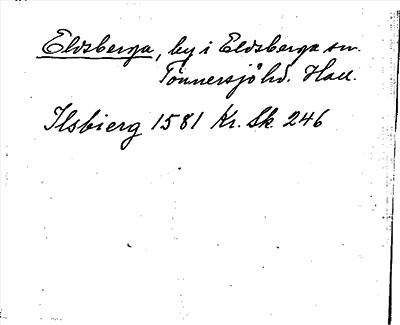 Eldsberga, by i Eldsberga sn.
Tönnersjö hd. Hall.
Ilsbierg 1581 Kr. Sk. 246